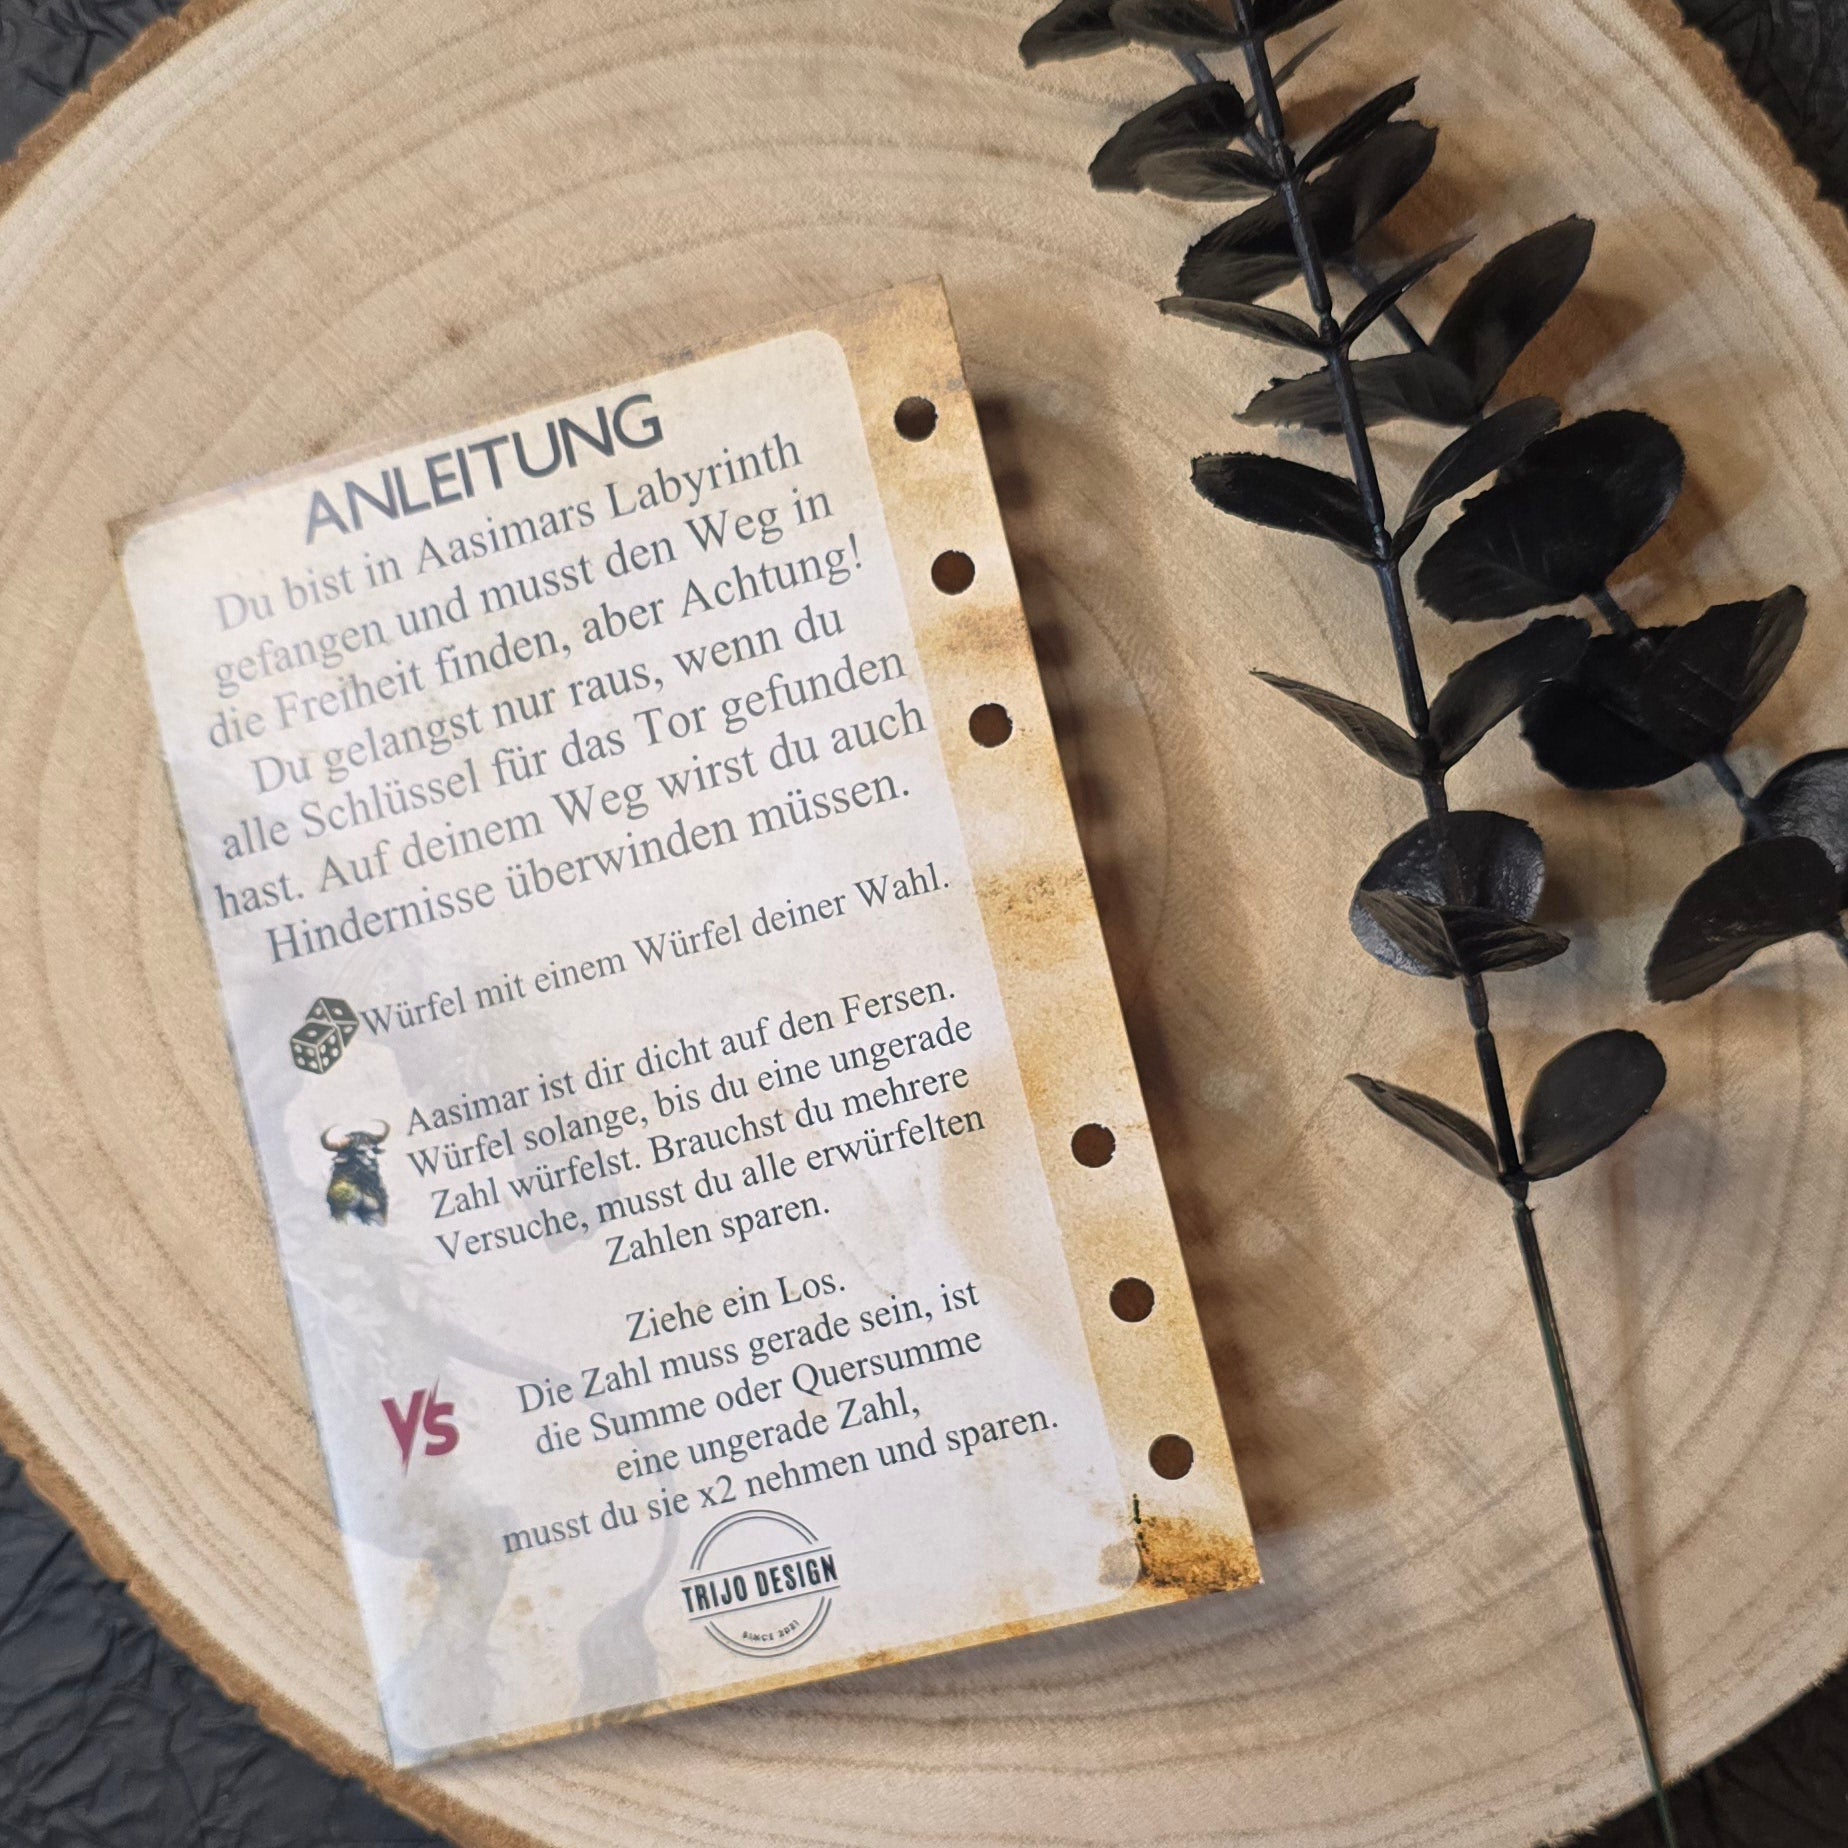 ANLEITUNG
Du bist in Aasimars Labyrinth
gefangen und musst den Weg in
die Freiheit finden, aber Achtung!
Du gelangst nur raus, wenn du
alle Schlüssel für das Tor gefunden
hast. Auf deinem Weg wirst du auch
Hindernisse überwinden müssen.
Würfel mit einem Würfel deiner Wahl.
Aasimar ist dir dicht auf den Fersen.
Würfel solange, bis du eine ungerade
Zahl würfelst. Brauchst du mehrere
Versuche, musst du alle erwürfelten
Zahlen sparen.
Ziehe ein Los.
Die Zahl muss gerade sein, ist
die Summe oder Quersumme
eine ungerade Zahl,
musst du sie x2 nehmen und sparen.
VS
TRIJO DESIGN
SINCE 2021